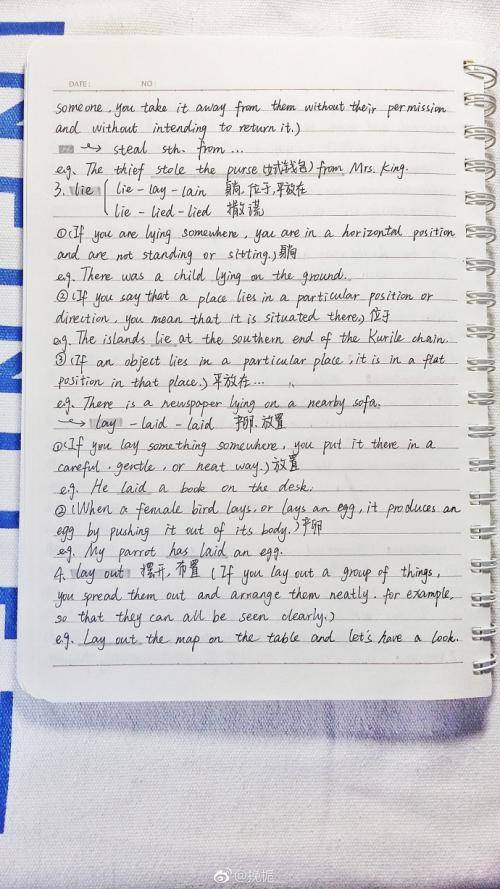 DATE: NO:
someone, you take it away from them without their permission
and without intending to return it.)
→ steal sth. from ...
e.g. The thief stole the purse (女式钱包) from Mrs. King.
3. lie { lie-lay-lain 躺,位于,平放在
lie-lied-lied 撒谎
①(If you are lying somewhere, you are in a horizontal position
and are not standing or sitting.) 躺
e.g. There was a child lying on the ground.
②(If you say that a place lies in a particular position or
direction, you mean that it is situated there.) 位于
e.g. The islands lie at the southern end of the Kurile chain.
③(If an object lies in a particular place, it is in a flat
position in that place.) 平放在...
e.g. There is a newspaper lying on a nearby sofa.
→ lay -laid-laid 产卵,放置
①(If you lay something somewhere, you put it there in a
careful, gentle, or neat way.) 放置
e.g. He laid a book on the desk.
②(When a female bird lays, or lays an egg, it produces an
egg by pushing it out of its body.) 产卵
e.g. My parrot has laid an egg.
4. lay out 摆开,布置 (If you lay out a group of things,
you spread them out and arrange them neatly. for example,
so that they can all be seen clearly.)
e.g. Lay out the map on the table and let's have a look.
@挽栀